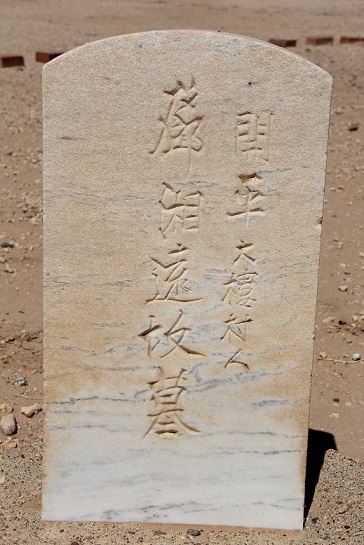 開平大樓村人
鄧湘遠故墓